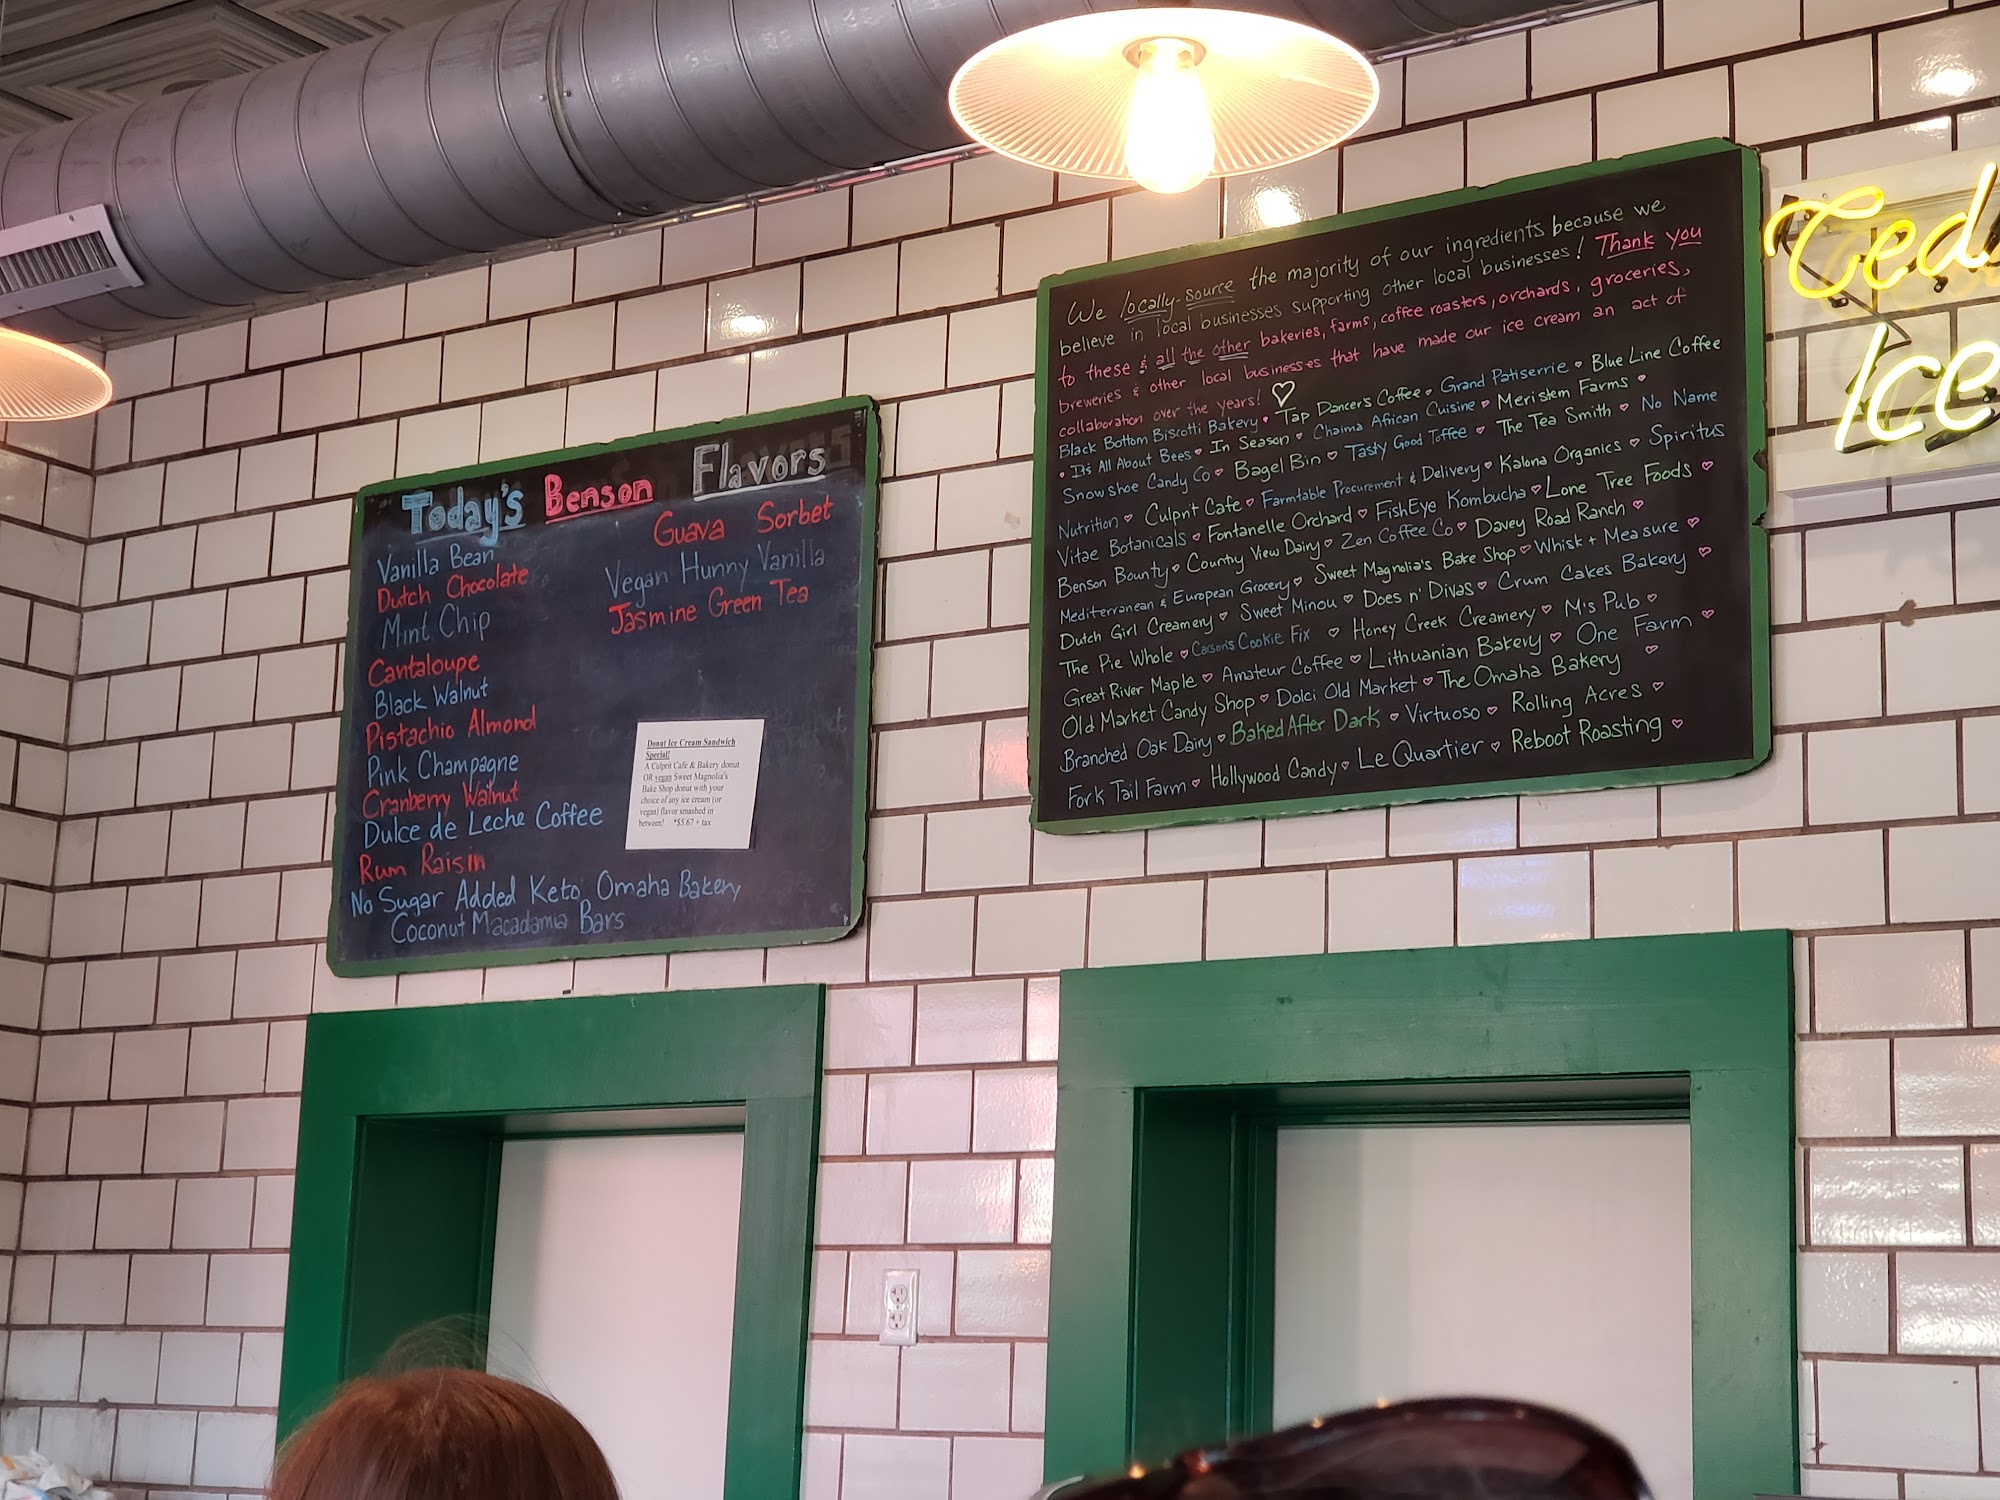 Today's Benson Flavors
Vanilla Bean
Dutch Chocolate
Mint Chip
Cantaloupe
Black Walnut
Pistachio Almond
Pink Champagne
Cranberry Walnut
Dulce de Leche Coffee
Rum Raisin
No Sugar Added Keto Omaha Bakery
Coconut Macadamia Bars
Guava Sorbet
Vegan Hunny Vanilla
Jasmine Green Tea
Donut Ice Cream Sandwich
Special!
A Culprit Cafe & Bakery donut
OR vegan Sweet Magnolia's
Bake Shop donut with your
choice of any ice cream (or
vegan) flavor smashed in
between! *$5.67 + tax
We locally-source the majority of our ingredients because we
believe in local businesses supporting other local businesses! Thank you
to these & all the other bakeries, farms, coffee roasters, orchards, groceries,
breweries & other local businesses that have made our ice cream an act of
collaboration over the years! ♡
Black Bottom Biscotti Bakery • Tap Dancer's Coffee • Grand Patisserie • Blue Line Coffee
• It's All About Bees • In Season • Chaima African Cuisine • Meristem Farms •
Snowshoe Candy Co ♡ Bagel Bin ♡ Tasty Good Toffee ♡ The Tea Smith ♡ No Name
Nutrition ♡ Culprit Cafe ♡ Farmtable Procurement & Delivery ♡ Kalona Organics ♡ Spiritus
Vitae Botanicals ♡ Fontanelle Orchard ♡ FishEye Kombucha ♡ Lone Tree Foods ♡
Benson Bounty ♡ Country View Dairy ♡ Zen Coffee Co ♡ Davey Road Ranch ♡
Mediterranean & European Grocery ♡ Sweet Magnolia's Bake Shop ♡ Whisk + Measure ♡
Dutch Girl Creamery ♡ Sweet Minou ♡ Does n' Divas ♡ Crum Cakes Bakery ♡
The Pie Whole ♡ Carson's Cookie Fix ♡ Honey Creek Creamery ♡ M's Pub ♡
Great River Maple ♡ Amateur Coffee ♡ Lithuanian Bakery ♡ One Farm ♡
Old Market Candy Shop ♡ Dolci Old Market ♡ The Omaha Bakery ♡
Branched Oak Dairy ♡ Baked After Dark ♡ Virtuoso ♡ Rolling Acres ♡
Fork Tail Farm ♡ Hollywood Candy ♡ Le Quartier ♡ Reboot Roasting ♡
Ted
Ice